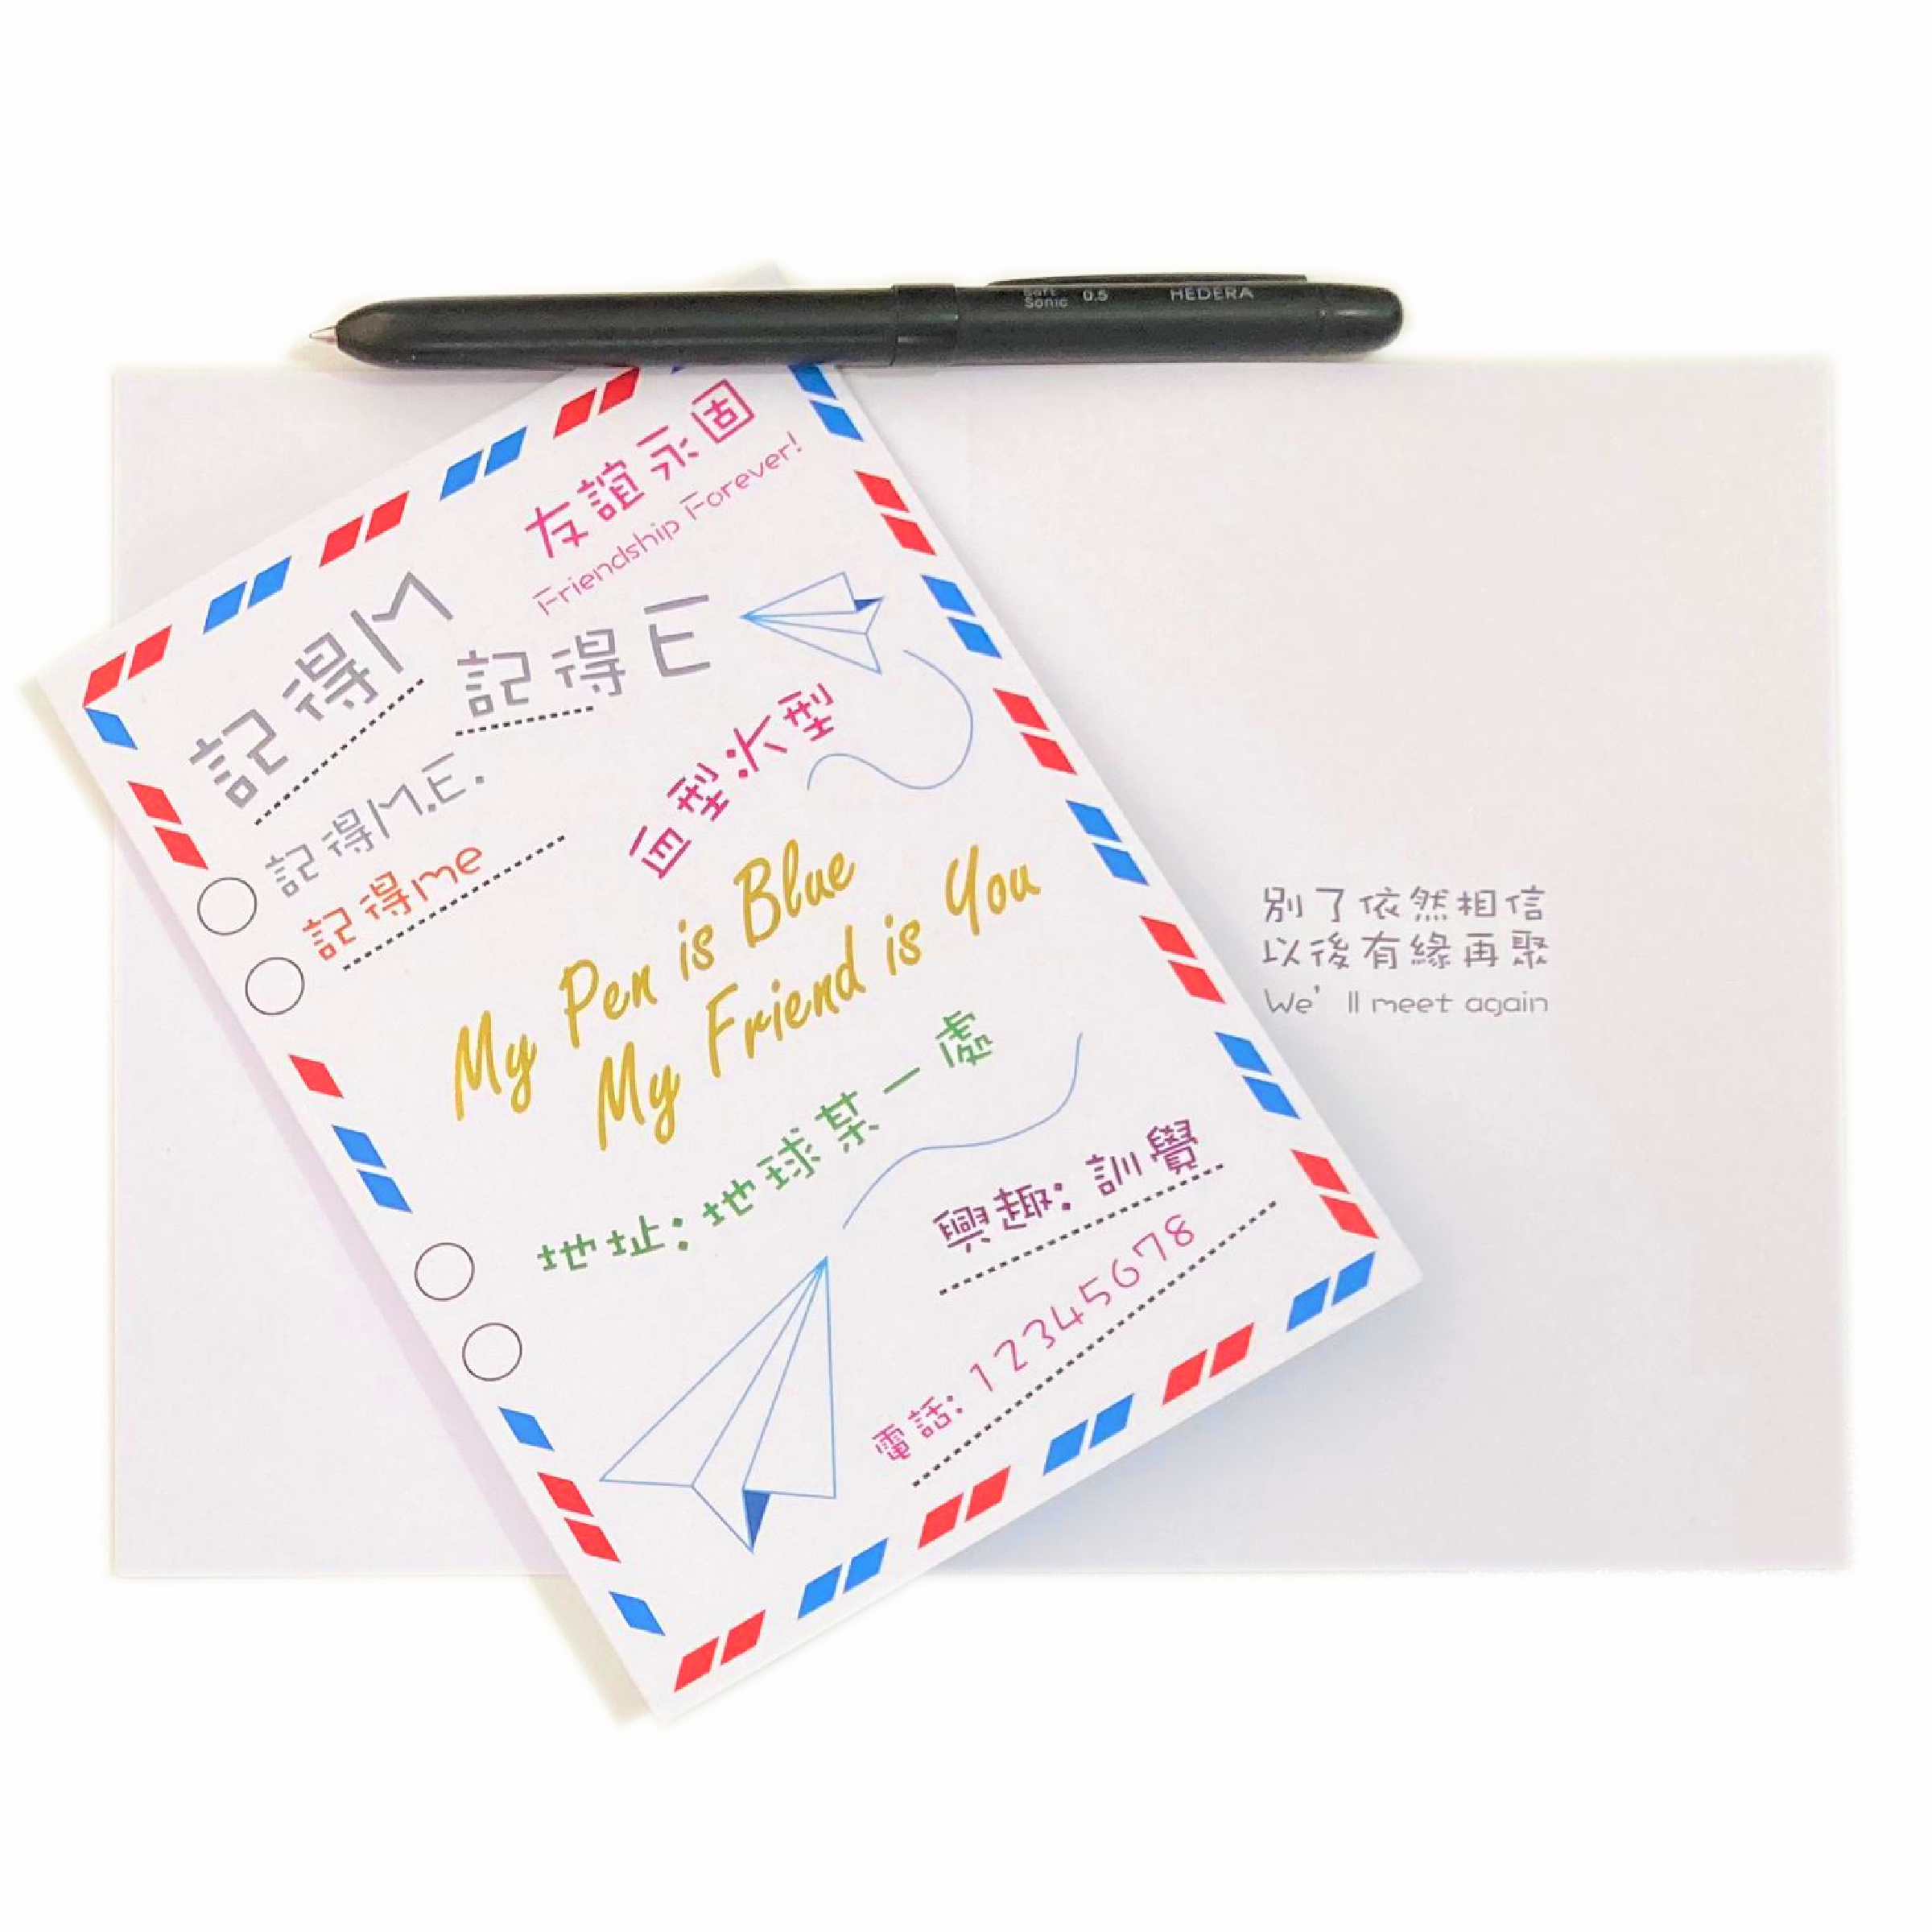 Soft
Sonic 0.5 HEDERA
友誼永固
Friendship Forever!
記得M
記得E
記得M.E.
記得me
血型:大型
My Pen is Blue
My Friend is You
地址:地球某一處
興趣:訓覺
電話:12345678
別了依然相信
以後有緣再聚
We'll meet again